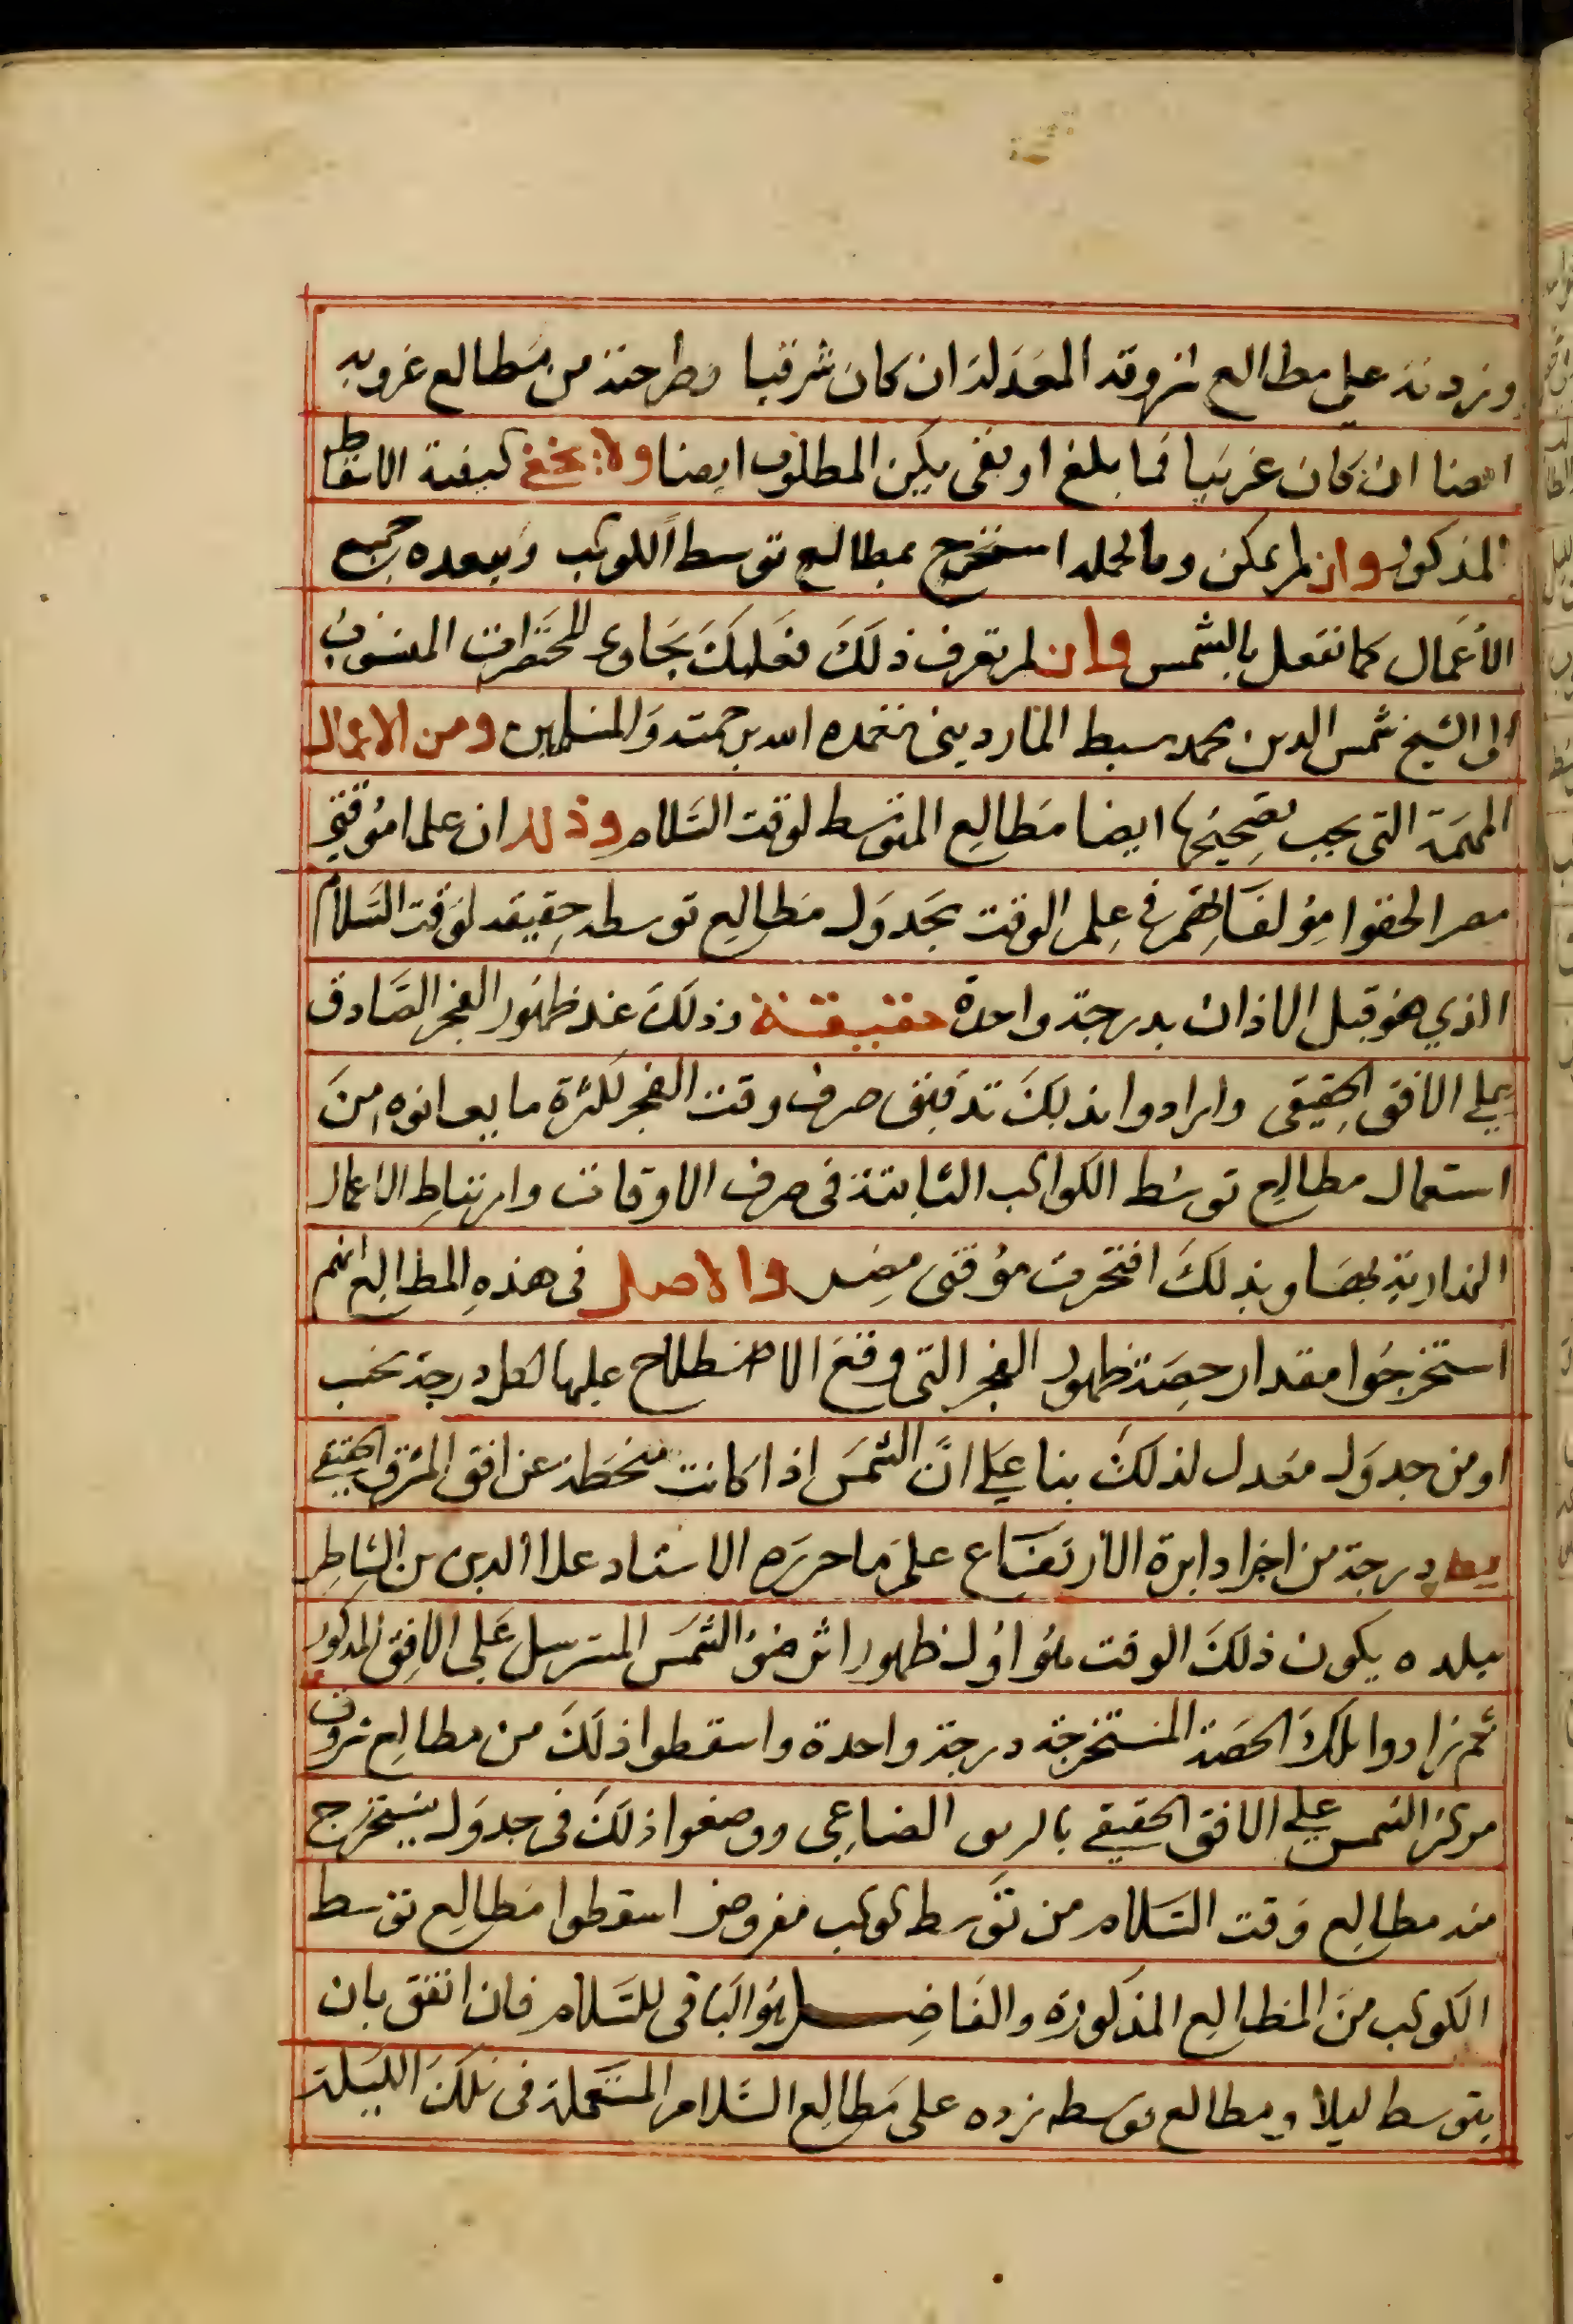 وزدته على مطالع شروقه المعدلة ان كان شرقيا وطرحته من مطالع غروبه
ايضا ان كان غربيا فما بلغ او بقى يكن المطلوب ايضا ولا يخفى كيفية الاسقاط
المذكور وان لم يمكن وبالجمله استخرج بمطالع توسط الكوكب وببعده جميع
الأعمال كما تفعل بالشمس وان لم تعرف ذلك فعليك بجداول المحررات المنسوب
الى الشيخ شمس الدين محمد سبط المارديني تغمده الله برحمته والمسلمين ومن الاعمال
المهمة التى يجب تصحيحها ايضا مطالع المتوسط لوقت السلام وذلك ان علما مؤقتي
مصر الحقوا مؤلفاتهم في علم الوقت بجدول مطالع توسط حقيقه لوقت السلام
الذي هو قبل الاذان بدرجة واحدة حقيقة وذلك عند ظهور الفجر الصادق
على الافق الحقيقى وارادوا بذلك تدقيق صرف وقت الفجر لكثرة ما يعانوه من
استعمال مطالع توسط الكواكب الثابتة فى صرف الاوقات وارتباط الاعمال
المدارية بها وبذلك افتخرت مؤقتى مصر والاصل فى هذه المطالع انهم
استخرجوا مقدار حصة ظهور الفجر التى وقع الاصطلاح عليها لكل درجة بحسب
او من جدول معدل لذلك بنا على انّ الشمس اذا كانت منحطة عن افق المشرق الحقيقي
يط درجة من اجزا دايرة الارتفاع على ما حرره الاستاد علاا الدين بن الشاطر
ببلده يكون ذلك الوقت هو اول ظهور اثر ضو الشمس المسترسل على الافق المذكور
ثم زادوا تلك الحصة المستخرجة درجة واحدة واسقطوا ذلك من مطالع شروق
مركز الشمس على الافق الحقيقي الصاعي ووضعوا ذلك فى جدول يستخرج
منه مطالع وقت السلام من توسط كوكب مفروض اسقطوا مطالع توسط
الكوكب من المطالع المذكورة والفاضل هو الباقى للسلام فان اتفق بان
يتوسط ليلا ومطالع توسطه زده على مطالع السلام المستعملة فى تلك الليلة